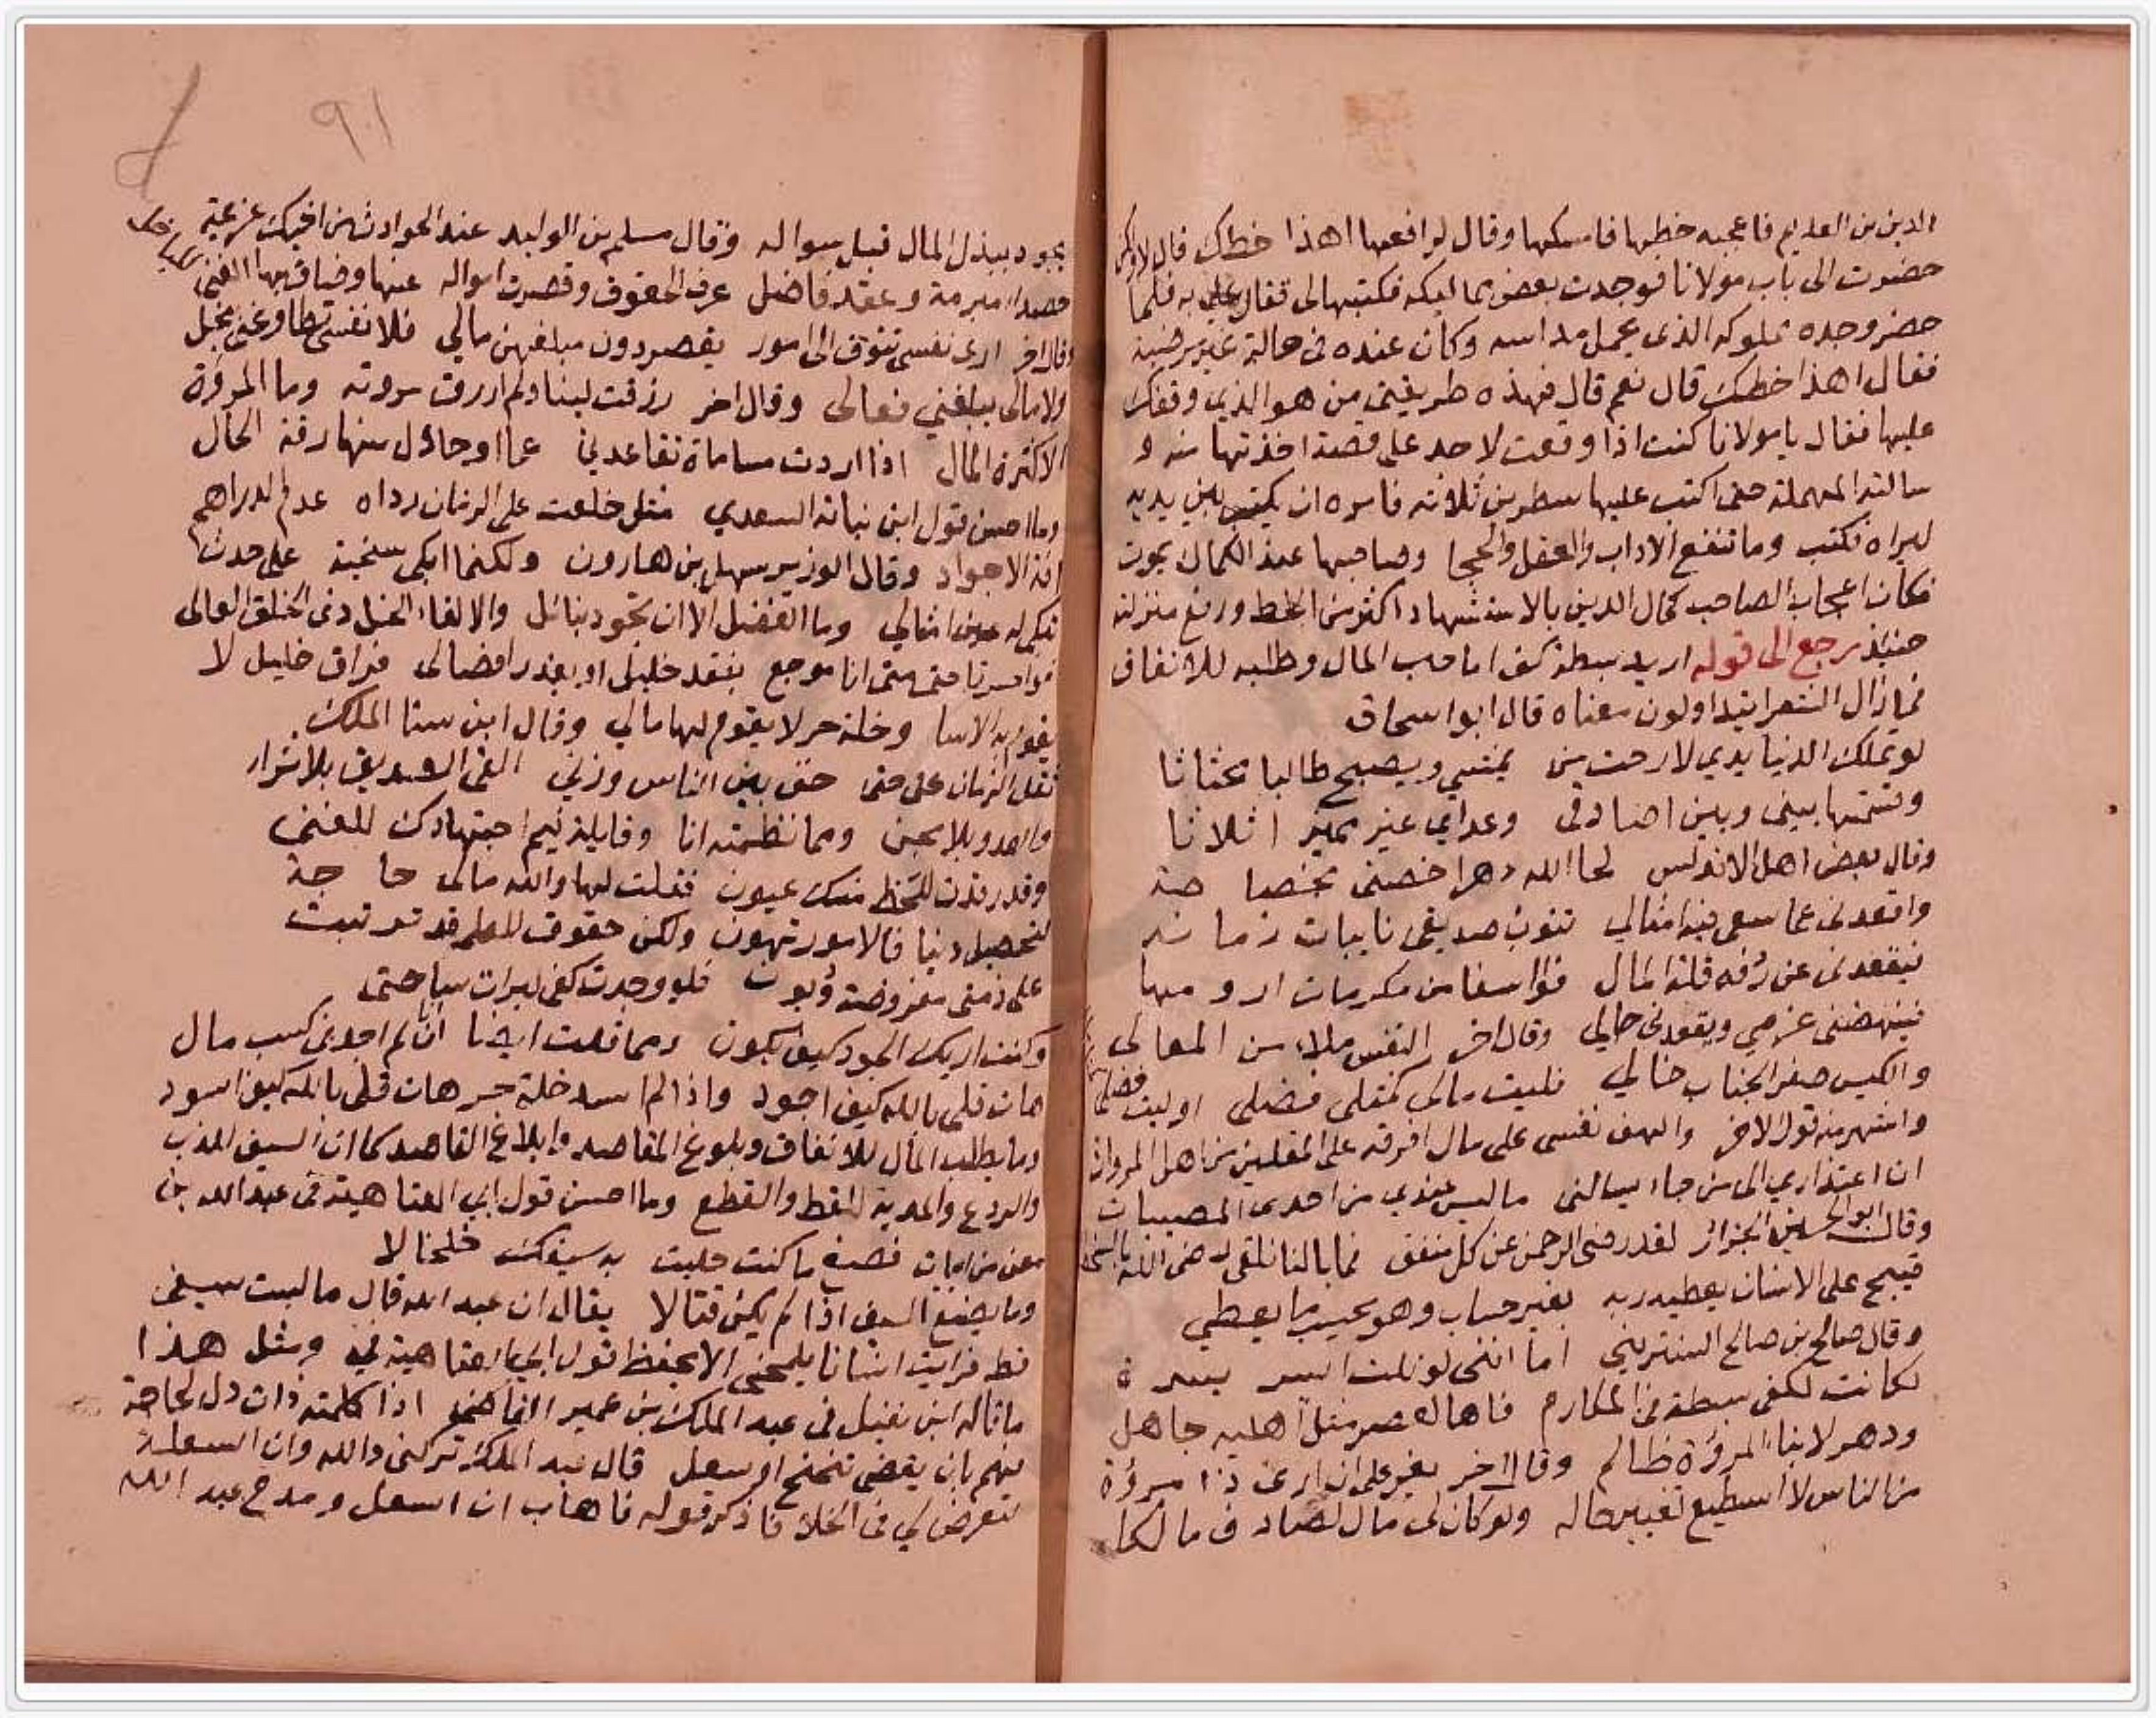 الدين بن العديم فاعجبه خطها فامسكها وقال لرافعها اهذا خطك قال لا ولكن
حضرت الى باب مولانا فوجدت بعض مماليكه فكتبها لى فقال علي به فلما
حضر وجده مملوكه الذى يحمل مداسه وكان عنده فى حالة غير مرضية
فقال اهذا خطك قال نعم قال فهذه طريقتى من هو الذي وقفك
عليها فقال يا مولانا كنت اذا وقعت لاحد على قصة اخذتها منه و
سالته المهملة حتى اكتب عليها سطرين ثلاثه فامره ان يكتب بين يديه
ليراه فكتب وما تنفع الاداب والعقل والحجا وصاحبها عند الكمال يموت
فكان اعجاب الصاحب كمال الدين بالاستشهاد اكثر من الخط ورفع منزلته
حينئذ رجع الى قوله اريد بسطة كف اما حب المال وطلبه للانفاق
فما زال الشعرا يتداولون معناه قال ابو اسحاق
لو تملك الدنيا يدي لارحت من يمشي ويصبح طالبا محتاثا
وقسمتها بينى وبين اصادقى وعداي غير مميز اثلاثا
وقال بعض اهل الاندلس لحا الله دهرا خصنى بخصاصة
واقعدنى عما سعى فيه امثالي تنوب صديقى نايبات زمانه
فيقعدنى عن رفه قلة المال فوا اسفا من مكرمات ارومها
فينهضنى عزمي ويقعدنى حالي وقال اخر النفس ملاء من المعالى
والكيس صفر الجناب خالي فليت مالى كمثلى فضلى او ليت فضلى
واشهر منه قول الاخر والهف نفسى على مال افرقه على المقلين من اهل المروات
ان اعتذاري الى من جاء يسالنى ما ليس عندي من احدى المصيبات
وقال ابو الحسين الجزار لقد رضى الرحمن عن كل منفق فما بالنا نلقى رضى الله بالسخط
قبيح على الانسان يعطيه ربه بغير حساب وهو يحسب ما يعطي
وقال صالح بن صالح الشنتريني اما اننى لو نلت ايسر يسرة
لكانت لكفى بسطة فى المكارم فاها له عصر مثل اهليه جاهل
ودهر لابناء المروة ظالم وقال اخر يعز على ان ارى ذا مروة
من الناس لا اسطيع تغيير حاله ولو كان لى مال لصادف مالكا
٩١
يجود ببذل المال قبل سواله وقال مسلم بن الوليد عند الحوادث من اخيك عزيمة
حصداء مبرمة وعقد فاضل عرف الحقوق وقصرت امواله عنها وضاق بها الغنى
وقال اخر ارى نفسى تتوق الى امور يقصر دون مبلغهن مالي فلا نفسى تطاوعنى ببخل
ولا مالى يبلغني فعالى وقال اخر رزقت لبا ولم ارزق مروته وما المروة
الا كثرة المال اذا اردت مساماة تقاعدني عما احاول منها رقة الحال
وما احسن قول ابن نباته السعدي مثلى خلعت على الزمان رداه عدم الدراهم
افة الاجواد وقال الوزير سهل بن هارون ولكنما ابكى بعين سخينة على حدث
تبكى له عين امثالي وما الفضل الا ان تجود بنائل والا لقاء الخل ذى الخلق العالى
فواحسرتا حتى متى انا موجع بفقد خليل او تعذر افضالى فراق خليل لا
يقوم به الاسا وخلة حر لا يقوم لها مالي وقال ابن سنا الملك
ثقل الزمان على حتى خف بين الناس وزني القى الصديق بلا ثراء
والعدو بلا مجن ومما نظمته انا وقايلة فيم اجتهادك للغنى
وقد رقدت للحظ منك عيون فقلت لها والله مالى حاجة
لتحصيل دنيا فالامور تهون ولكن حقوق للعلم قد ترتبت
على ذمتى مفروضة وديون فلو وجدت كفى لبرات ساحتى
وكنت اريك الجود كيف يكون ومما قلت ايضا انا لم اجد فى كسب مال
هات قلى بالله كيف اجود واذا لم اسد خلة حر هات قلى بالله كيف اسود
وما يطلب المال للانفاق وبلوغ المقاصد وابلاغ القاصد كما ان السيف للضرب
والردع والمدية للقط والقطع وما احسن قول ابي العتاهية فى عبد الله بن
معن من ابيات فصغ ما كنت حليت به سيفك خلخالا
وما يصنع السيف اذا لم يكن قتالا يقال ان عبد الله قال ما لبست سيفى
قط فرايت انسانا يلمحنى الا يحفظ قول ابي العتاهية لي ومثل هذا
ما قاله ابن نفيل فى عبد الملك بن عمير القاضى اذا كلمته ذات دل لحاجة
فهم بان يقضى تنحنح او سعل قال عبد الملك تركنى والله وان السعلة
لتعرض لي فى الخلا فاذكر قوله فاهاب ان اسعل ومدح عبد الله